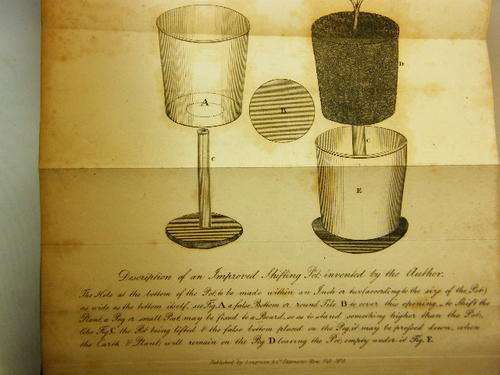 A
B
C
D
C
E
Description of an Improved Shifting Pot, invented by the Author.
The Hole at the bottom of the Pot, to be made within an Inch or two (according to the size of the Pots)
as wide as the bottom itself, see Fig. A a false Bottom or round Tile to cover this opening, to Shift the
Plant, a Peg or small Post, may be fixed to a Board, so as to stand something higher than the Pots,
like Fig. the Pot being lifted & the false bottom placed on the Peg, it may be pressed down, when
the Earth & Plant, will remain on the Peg D leaving the Pot, empty under it Fig. E.
Published by Longman & Co. Paternoster Row